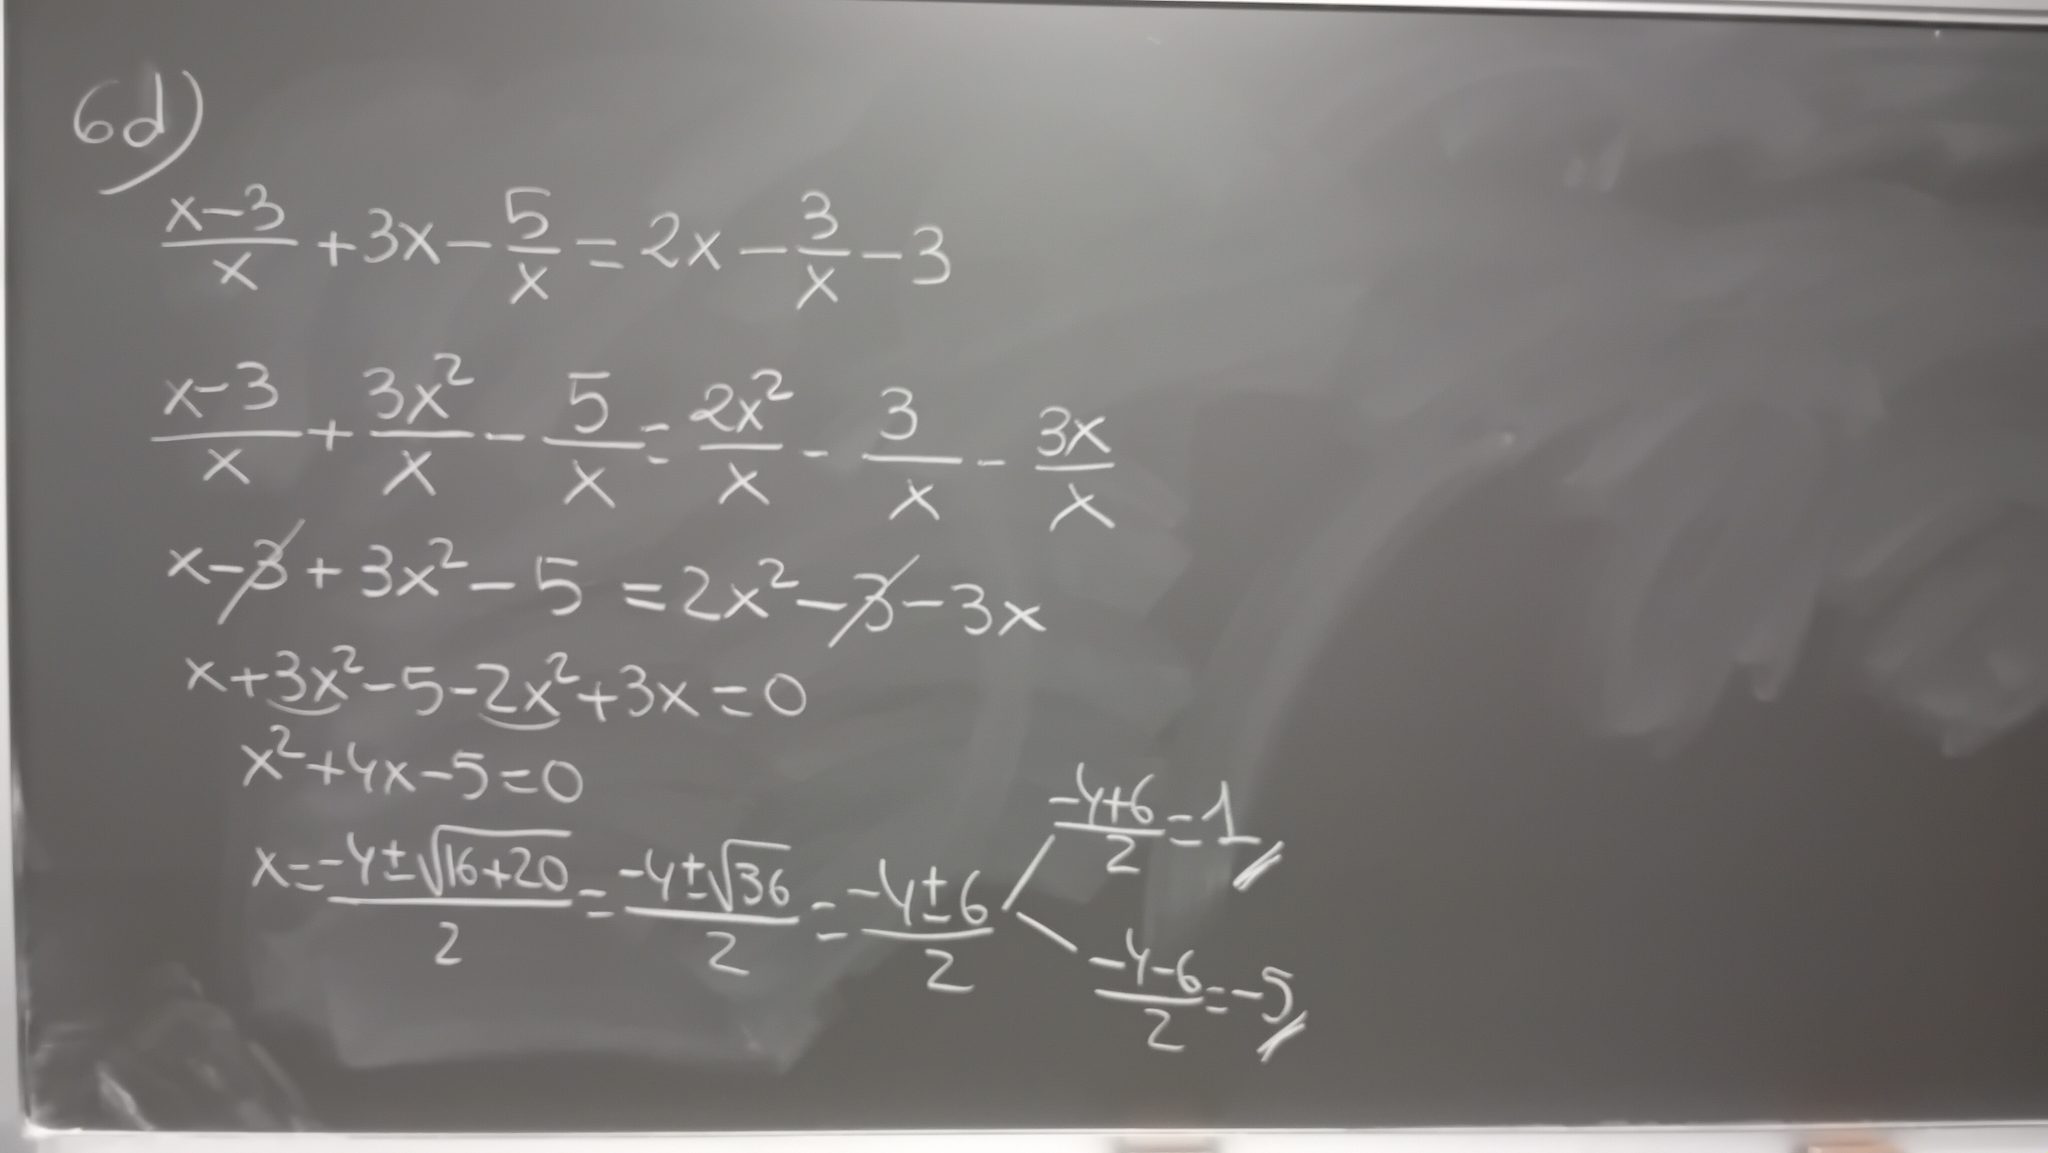 6d)
(x-3)/x + 3x - 5/x = 2x - 3/x - 3
(x-3)/x + 3x²/x - 5/x = 2x²/x - 3/x - 3x/x
x - 3 + 3x² - 5 = 2x² - 3 - 3x
x + 3x² - 5 - 2x² + 3x = 0
x² + 4x - 5 = 0
x = (-4 ± √(16+20))/2 = (-4 ± √36)/2 = (-4 ± 6)/2
(-4+6)/2 = 1
(-4-6)/2 = -5